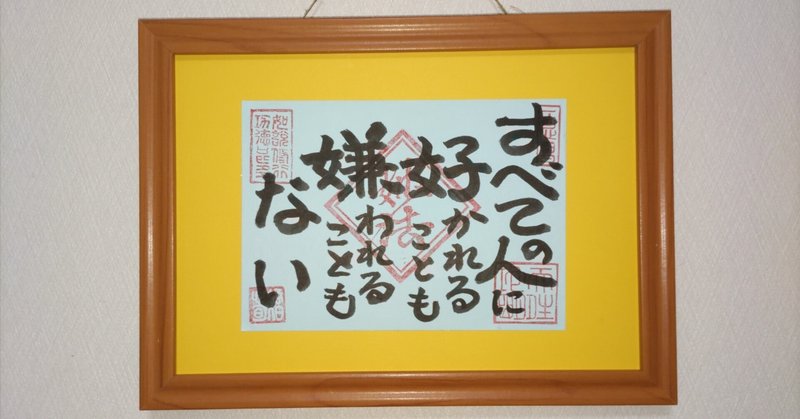 すべての人に
好かれる
ことも
嫌われる
ことも
ない